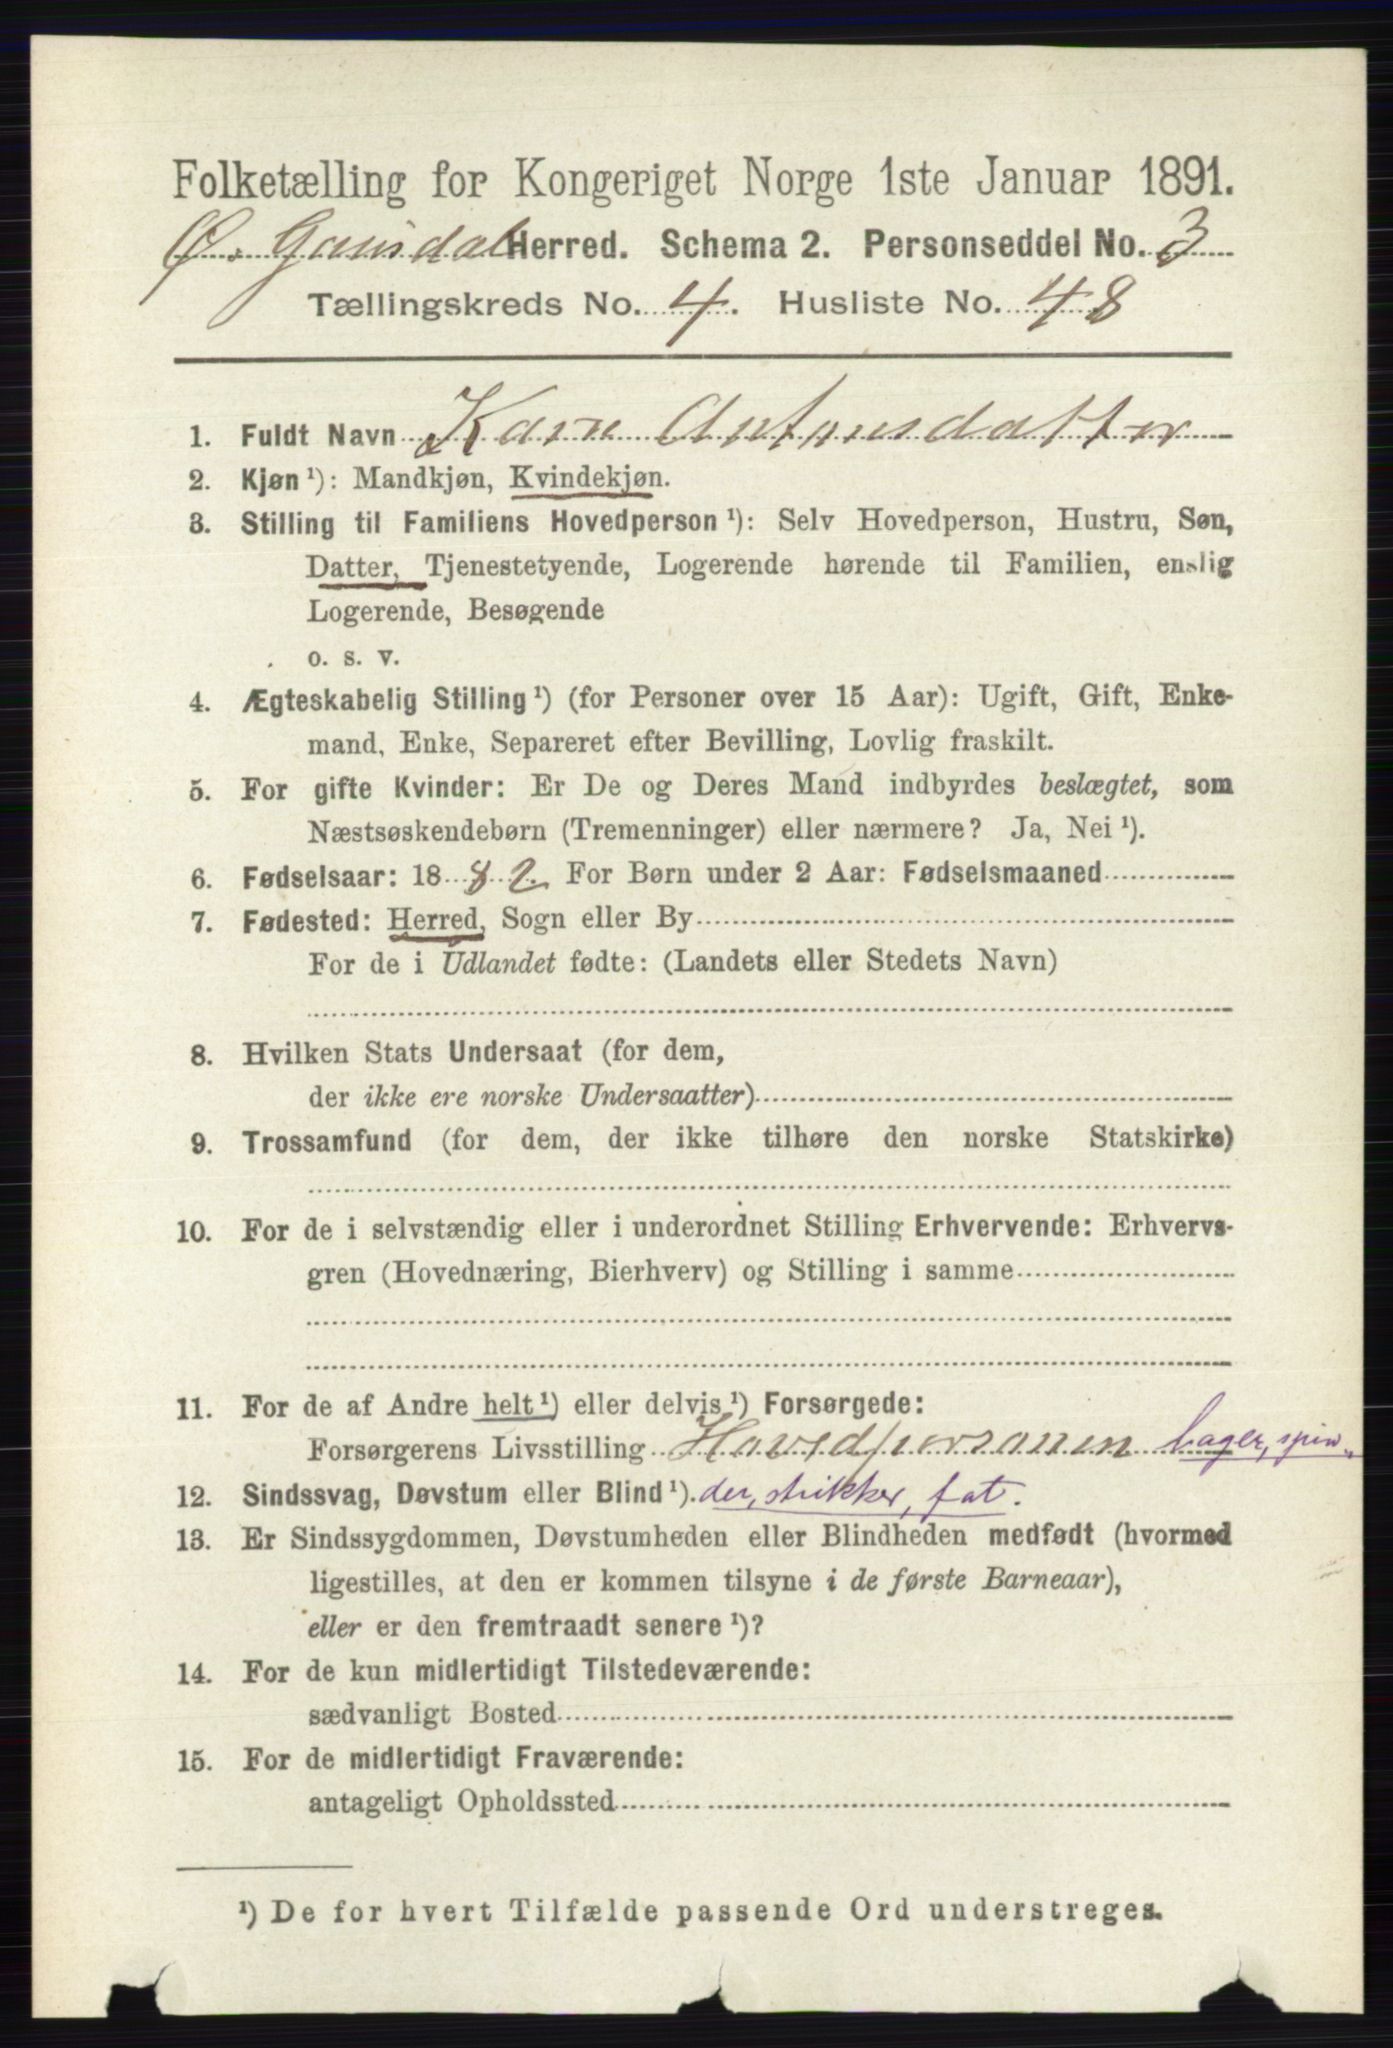 Folketælling for Kongeriget Norge 1ste Januar 1891.
Ø. Gausdal Herred. Schema 2. Personseddel No. 3
Tællingskreds No. 4. Husliste No. 48
1. Fuldt Navn Kari Antonsdatter
2. Kjøn ¹): Mandkjøn, Kvindekjøn.
3. Stilling til Familiens Hovedperson ¹): Selv Hovedperson, Hustru, Søn,
Datter, Tjenestetyende, Logerende hørende til Familien, enslig
Logerende, Besøgende
o. s. v.
4. Ægteskabelig Stilling ¹) (for Personer over 15 Aar): Ugift, Gift, Enke-
mand, Enke, Separeret efter Bevilling, Lovlig fraskilt.
5. For gifte Kvinder: Er De og Deres Mand indbyrdes beslægtet, som
Næstsøskendebørn (Tremenninger) eller nærmere? Ja, Nei ¹).
6. Fødselsaar: 1882. For Børn under 2 Aar: Fødselsmaaned
7. Fødested: Herred, Sogn eller By
For de i Udlandet fødte: (Landets eller Stedets Navn)
8. Hvilken Stats Undersaat (for dem,
der ikke ere norske Undersaatter)
9. Trossamfund (for dem, der ikke tilhøre den norske Statskirke)
10. For de i selvstændig eller i underordnet Stilling Erhvervende: Erhvervs-
gren (Hovednæring, Bierhverv) og Stilling i samme
11. For de af Andre helt ¹) eller delvis ¹) Forsørgede:
Forsørgerens Livsstilling Hovedpersonen bager, spin-
12. Sindssvag, Døvstum eller Blind ¹). der, strikker, fat.
13. Er Sindssygdommen, Døvstumheden eller Blindheden medfødt (hvormed
ligestilles, at den er kommen tilsyne i de første Barneaar),
eller er den fremtraadt senere ¹)?
14. For de kun midlertidigt Tilstedeværende:
sædvanligt Bosted
15. For de midlertidigt Fraværende:
antageligt Opholdssted
¹) De for hvert Tilfælde passende Ord understreges.